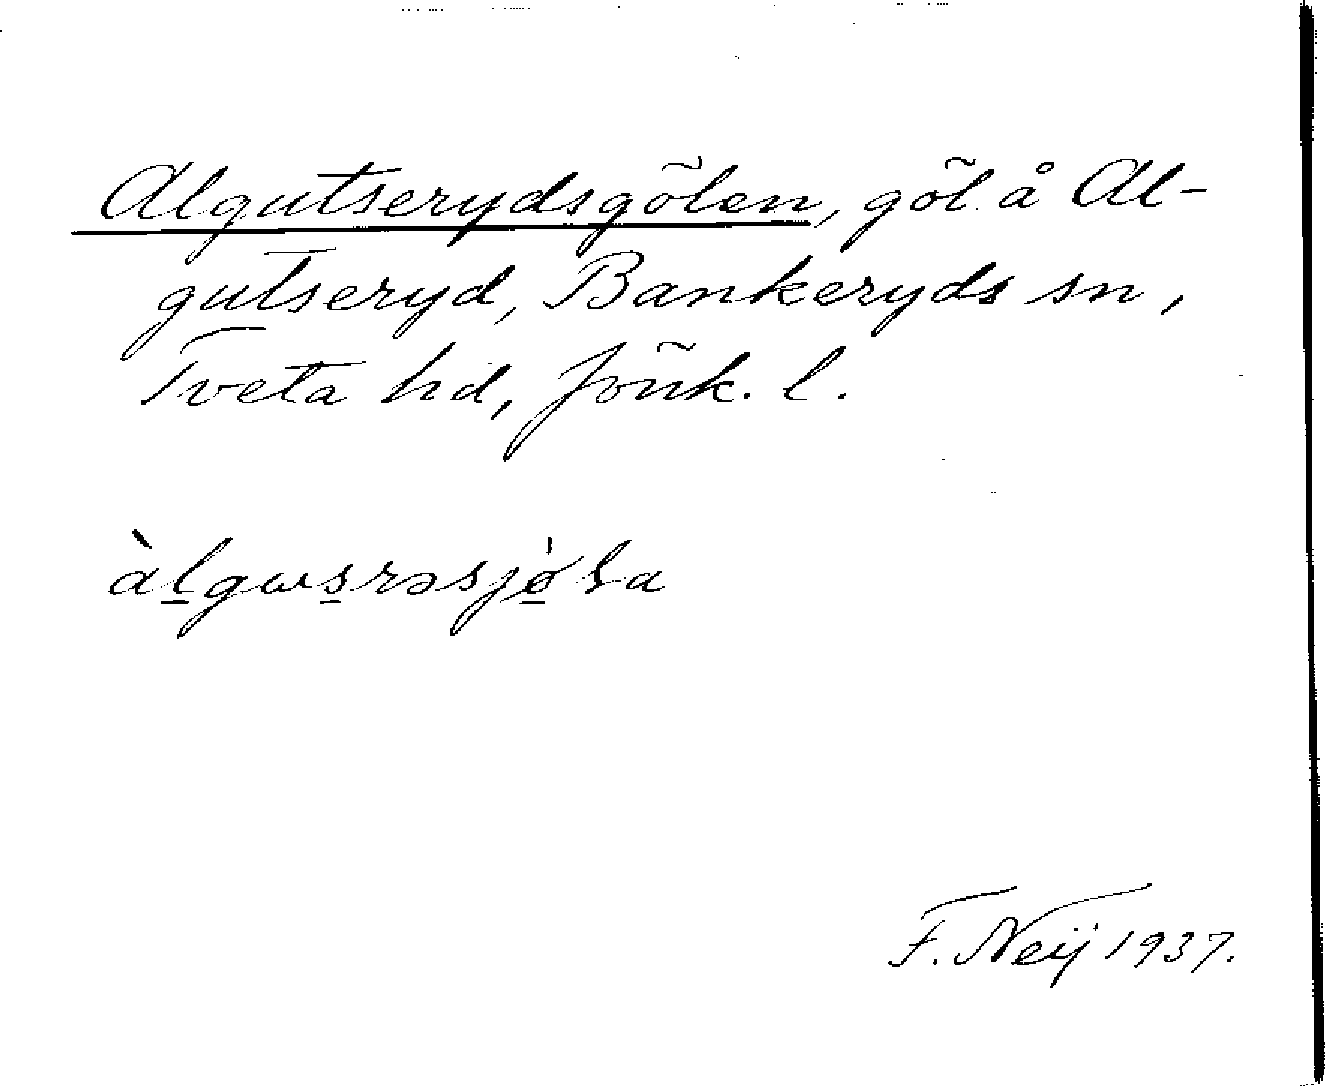 Algutserydsgölen, göl å Al-
gutseryd, Bankeryds sn,
Tveta hd, Jönk. l.
àl̲gɯs̲rəsjø̲̀ɬa
F. Neij 1937.